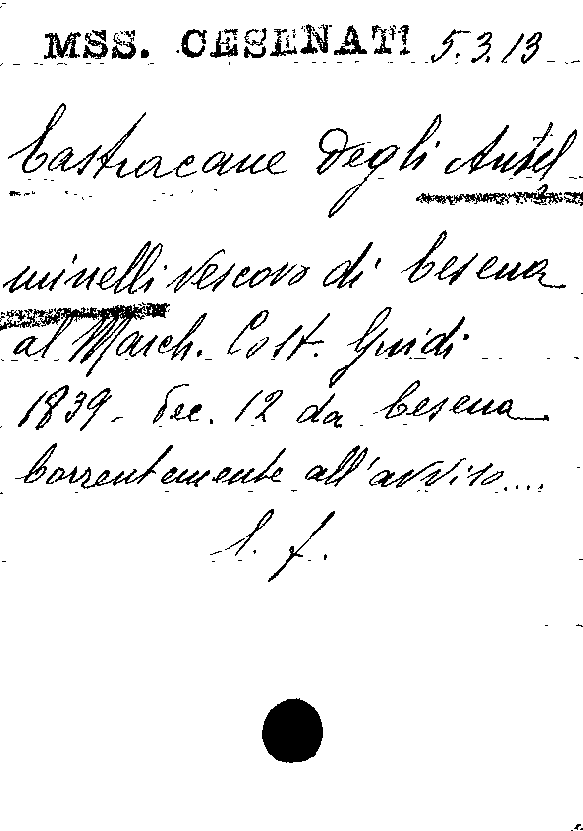 MSS. CESENATI 5.3.13
Castracane degli Antel
minelli vescovo di Cesena
al March. Cost. Guidi
1839 - Dec. 12 da Cesena
Correntemente all'avviso....
l. f.